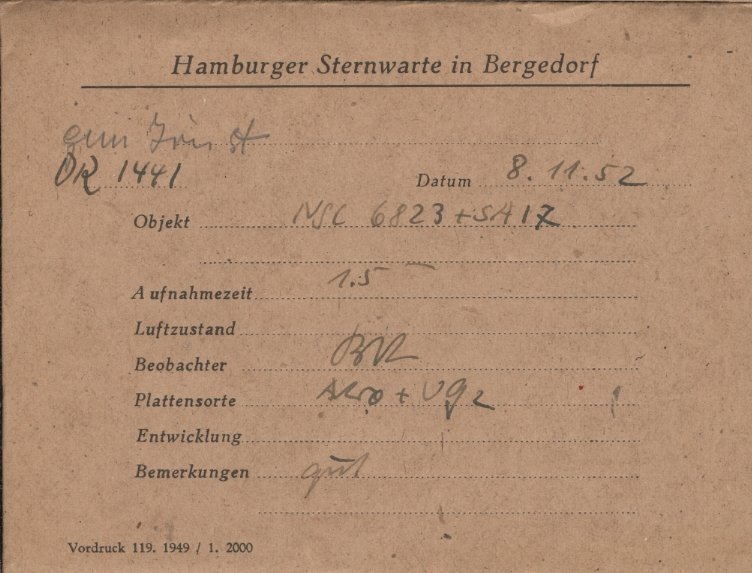 Hamburger Sternwarte in Bergedorf
DR 1441
Datum 8. 11. 52
Objekt NGC 6823 + SA 17
Aufnahmezeit 1.5
Luftzustand
Beobachter
Plattensorte + UG2
Entwicklung
Bemerkungen gut
Vordruck 119. 1949 / 1. 2000